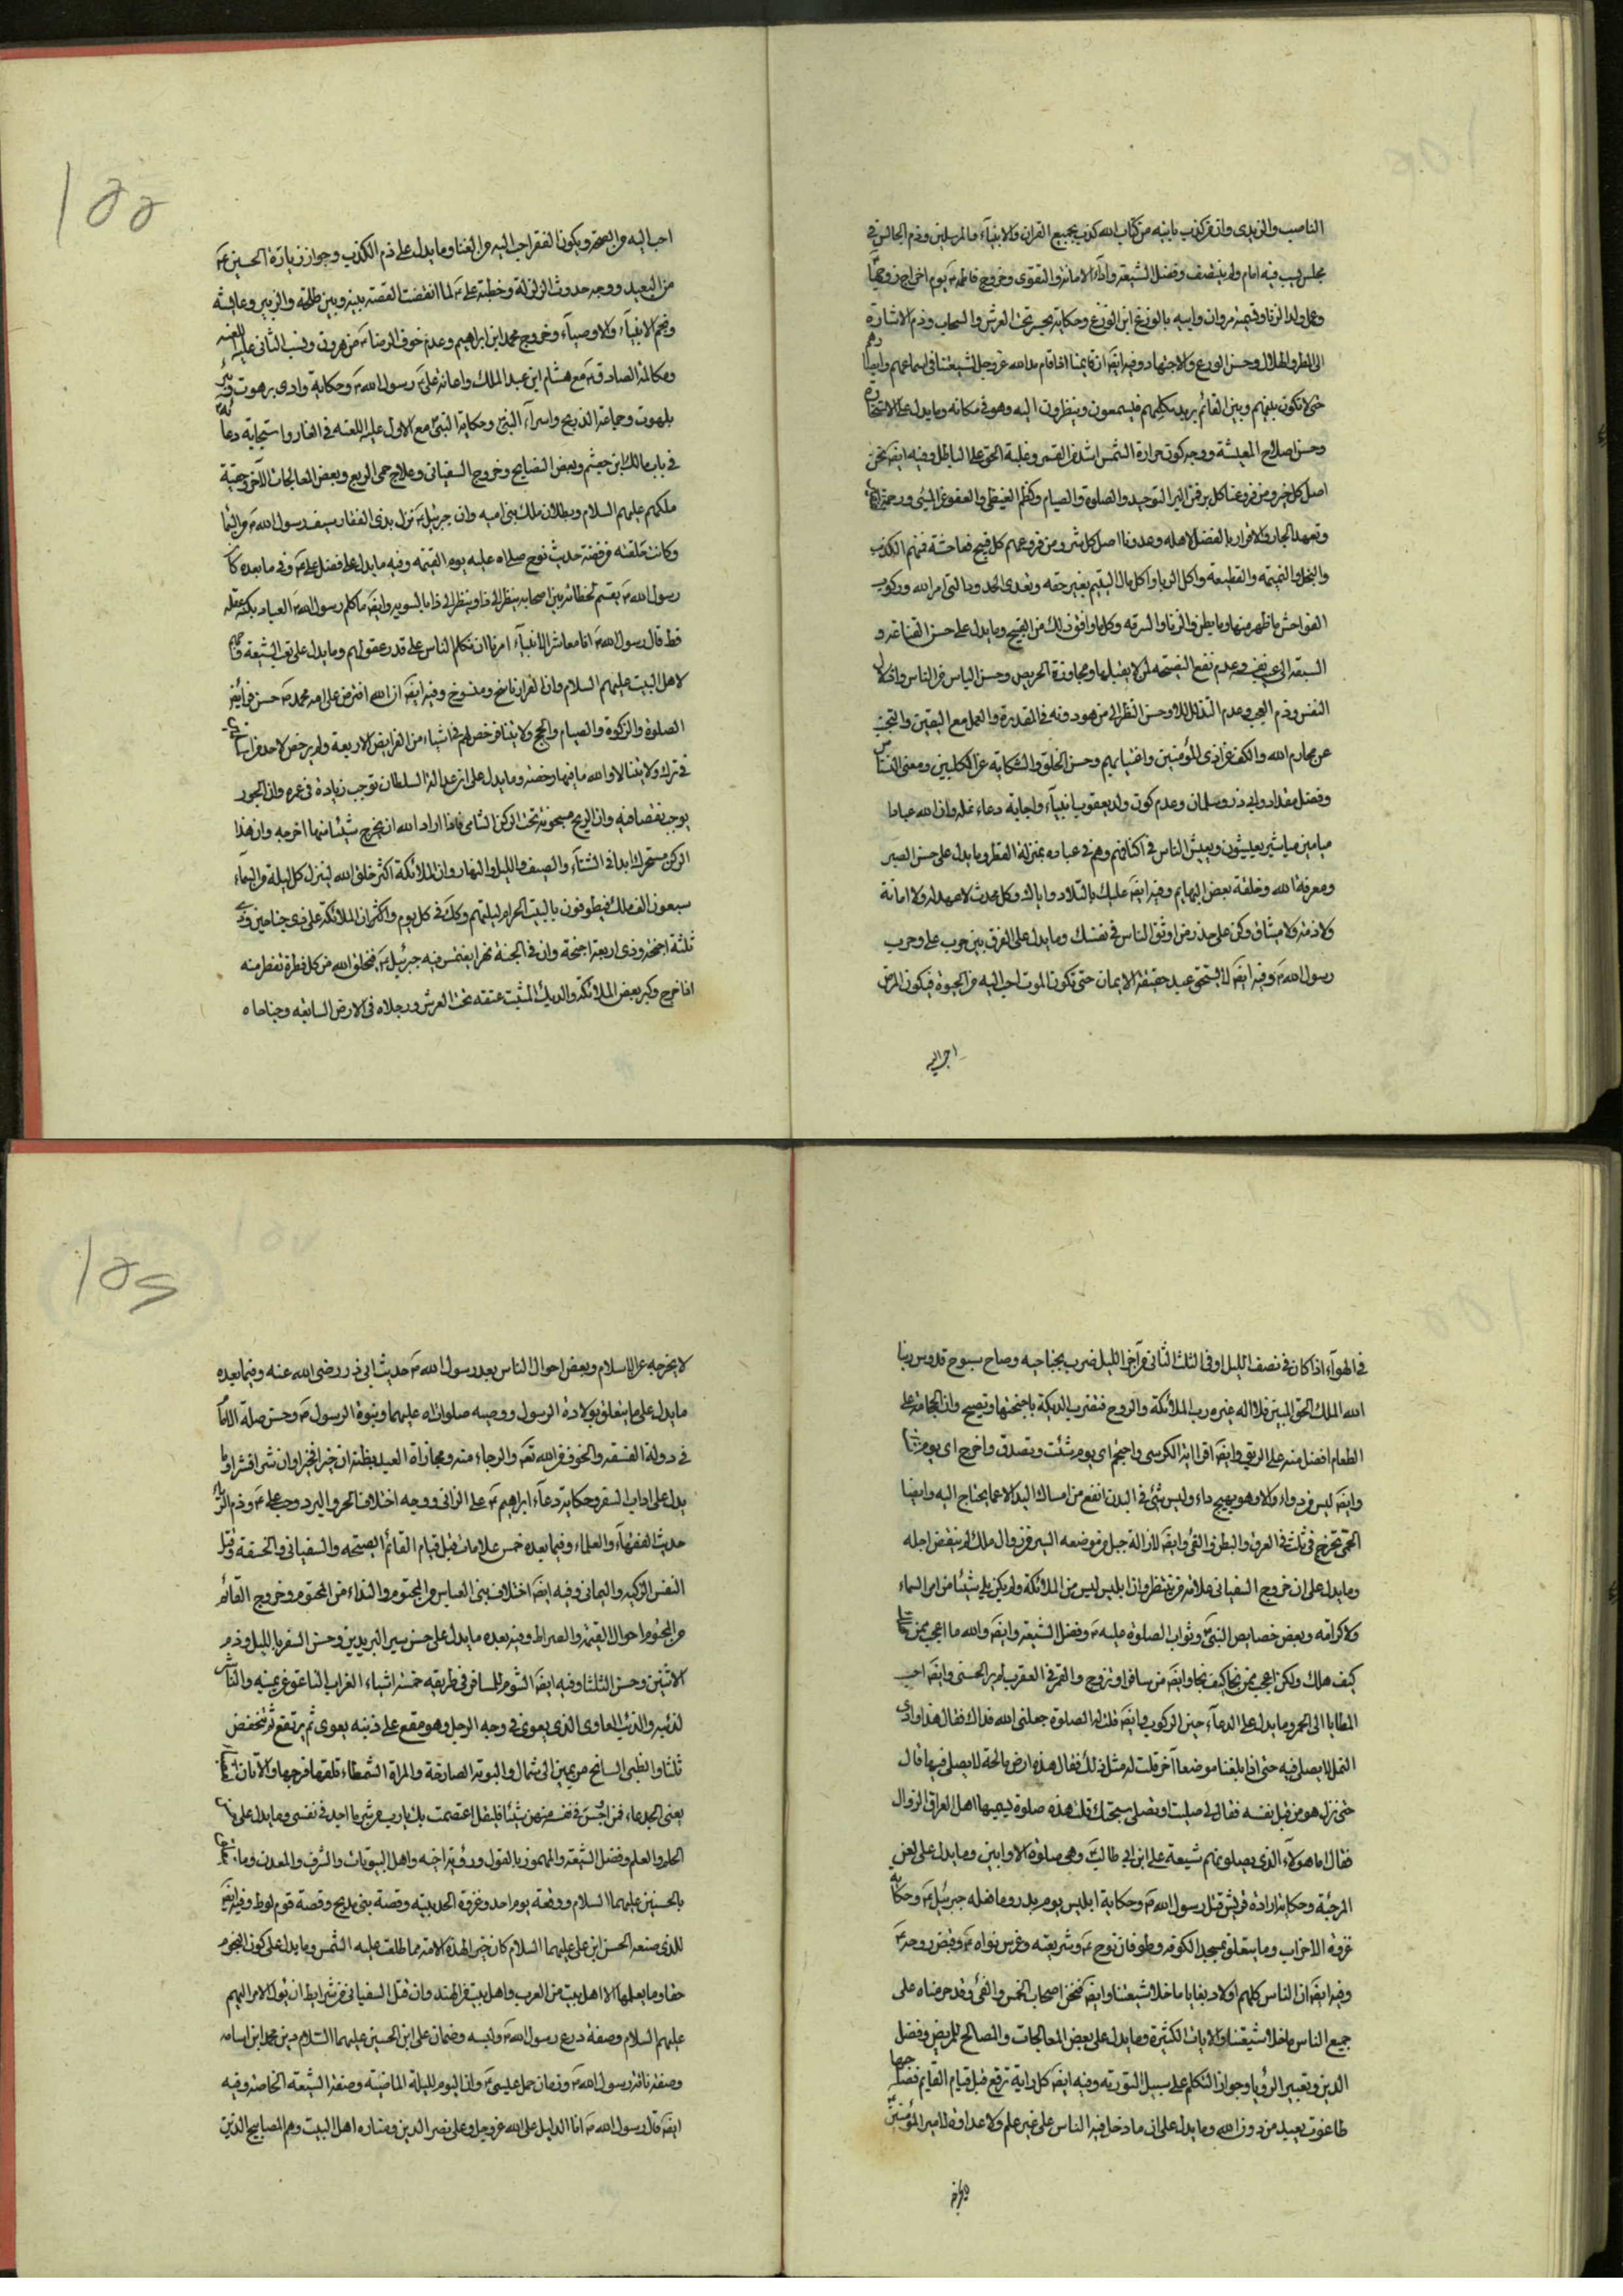 الناصب والزيدى وان من كذب باية من كتاب الله كذب بجميع القران والانبياء والمرسلين وذم الجالس فى
مجلس يسب فيه امام ولم ينتصف وفضل الشيعة واداء الامانة والتقوى وخروج فاطمة ع يوم اخراج زوجها
وعمل ولد الزنا وتسمية مروان وابيه بالوزغ ابن الوزغ وحكاية بحر تحت العرش والسحاب وذم الاشارة
الى المطر والهلال وحسن الورع والاجتهاد وفيه ايضا ان قايمنا اذا قام مد الله عز وجل لشيعتنا فى اسماعهم وابصارهم
حتى لا تكون بينهم وبين القائم بريد يكلمهم فيسمعون وينظرون اليه وهو فى مكانه وما يدل على الاستخارة
وحسن اصلاح المعيشة ووجه كون حرارة الشمس اشد من القمر وغلبة الحق على الباطل وفيه ايضا نحن
اصل كل خير ومن فروعنا كل بر فمن البر التوحيد والصلوة والصيام وكظم الغيظ والعفو عن المسئ ورحمة
وتعهد الجار والاقرار بالفضل لاهله وعدونا اصل كل شر ومن فروعهم كل قبيح وفاحشة فمنهم الكذب
والبخل والنميمة والقطيعة واكل الربا واكل مال اليتيم بغير حقه وتعدى الحدود التى امر الله وركوب
الفواحش ما ظهر منها وما بطن والزنا والسرقة وكل ما وافق ذلك من القبيح وما يدل على حسن القناعة و
عن محارم الله والكف عن اذى المؤمنين واغتيابهم وحسن الخلق والشكاية عن الكلبيين ومعنى النسناس
وفضل مقداد وابى ذر وسلمان وعدم كون ولد يعقوب انبياء واجابة دعاء نملة وان لله عبادا
ميامين مياسير يعيشون ويعيش الناس فى اكنافهم وهم فى عباده بمنزلة القطر وما يدل على حسن الصبر
ومعرفة الله وخلقة بعض البهايم وفيه ايضا عليك بالتلاد واياك وكل محدث لا عهد له ولا امانة
ولا ذمة ولا ميثاق وكن على حذر من اوثق الناس فى نفسك وما يدل على الفرق بين حرب على وحرب
رسول الله ص وفيه ايضا لا يستحق عبد حقيقة الايمان حتى تكون الموت احب اليه من الحيوة فيكون المرض
احب اليه
احب اليه من الصحة ويكون الفقر احب اليه من الغنا وما يدل على ذم الكذب وجواز زيارة الحسين ع
من البعيد ووجه حدوث الزلزلة وخطبة على ع لما انقضت القصة بينه وبين طلحة والزبير وعايشة
وفخم الانبياء والاوصياء وخروج محمد ابن ابراهيم وعدم خوف الرضا ع من هرون ونسب الثانى عليه اللعنة
ومكالمة الصادق ع مع هشام ابن عبد الملك واعانة على ع رسول الله ص وحكاية وادى برهوت
بلهوت وجماعة الذبيح واسراء النبى ص وحكاية النبى مع الاول عليه اللعنة فى الغار واستجابة دعائه
فى باب مالك ابن جعشم وبعض النصايح وخروج السفيانى وعلاج حمى الربع وبعض المعالجات الاخر
ملكهم عليهم السلام وبطلان ملك بنى اميه وان جبرئيل ع نزل بذى الفقار سيف رسول الله ص من السماء
وكانت حلقته من فضة حديث نوح صلى الله عليه يوم القيمة وفيه ما يدل على فضل على ع وفى ما بعده كان
رسول الله ص يقسم لحظاته بين اصحابه ينظر الى ذا وينظر الى ذا بالسوية وايضا ما كلم رسول الله ص العباد بكنه عقله
قط قال رسول الله ص انا معاشر الانبياء امرنا ان نكلم الناس على قدر عقولهم وما يدل على
لاهل البيت عليهم السلام وان القران ناسخ ومنسوخ وفيه ايضا ان الله افترض على امة محمد ص خمس فرايض
الصلوة والزكوة والصيام والحج وولايتنا فرخص لهم فى اشياء من الفرايض الاربعة ولم يرخص لاحد من
فى ترك ولايتنا لا والله ما فيها رخصة وما يدل على ان عدالة السلطان توجب زيادة فى عمره وان الجور
يوجب نقصانه وان الريح مسجونة تحت الركن الشامى فاذا اراد الله ان يخرج شيئا منها اخرجه وان هذا
الركن متحرك ابدا فى الشتاء والصيف والليل والنهار وان الملائكة اكثر خلق الله لينزل كل ليلة من السماء
سبعون الف ملك فيطوفون بالبيت الحرام ليلتهم وكذا فى كل يوم واكثر ان الملائكة على ذى جناحين
ثلثة اجنحة وذى اربعة اجنحة وان فى الجنة نهرا يغتمس فيه جبرئيل ع فيخلق الله من كل قطرة تقطر منه
اذا خرج وكبر بعض الملائكة والديك المثبت عنقه تحت العرش ورجلاه فى الارض السابعة وجناحاه
فى الهواء اذا كان فى نصف الليل او فى الثلث الثانى من اخر الليل ضرب بجناحيه وصاح سبوح قدوس ربنا
الله الملك الحق المبين فلا اله غيره رب الملائكة والروح فتضرب الديكة باجنحتها وتصيح وان الحجامة على
الطعام افضل منه على الريق وايضا اقرا اية الكرسى واحتجم اى يوم شئت وتصدق واخرج اى يوم شئت
وايضا ليس من دواء الا وهو يهيج داء وليس شئ فى البدن انفع من امساك اليد الا عما يحتاج اليه وايضا
الحمى تخرج فى ثلث فى العرق والبطن والقئ وايضا لازالة جبل من موضعه ايسر من زوال ملك لم ينقض اجله
وما يدل على ان خروج السفيانى علامة من ينتظر وان ابليس ليس من الملائكة ولم يكن يلى شيئا من امر السماء
ولا كرامة وبعض خصايص النبى ص وثواب الصلوة عليه ص وفضل الشيعة وايضا والله ما اعجب ممن هلك
كيف هلك ولكن اعجب ممن نجا كيف نجا وايضا من سافر او تزوج والقمر فى العقرب لم ير الحسنى وايضا احب
المطايا الى الحمر وما يدل على الدعاء حين الركوب وايضا قلت له الصلوة جعلنى الله فداك فقال هذا وادى
النمل لا يصلى فيه حتى اذا بلغنا موضعا آخر قلت له مثل ذلك فقال هذه ارض مالحة لا يصلى فيها قال
حتى نزل هو من قبل نفسه فقال لى صليت او تصلى سبحتك قلت هذه صلوة يسميها اهل العراق الزوال
فقال اما هؤلاء الذى يصلون هم شيعة على ابن ابى طالب ع وهى صلوة الاوابين وما يدل على لعن
المرجئة وحكاية ارادة قريش قتل رسول الله ص وحكاية ابليس يوم بدر وما فعله جبرئيل ع وحكاية
غزوة الاحزاب وما يتعلق بمسجد الكوفة وطوفان نوح ع وشريعته وغرس نواه ع وقبض روحه ع
وفيه ايضا ان الناس كلهم اولاد بغايا ما خلا شيعتنا وايضا فنحن اصحاب الخمس والفئ وقد حرمناه على
جميع الناس ما خلا شيعتنا والايات الكثيرة وما يدل على بعض المعالجات والصالح للمريض وفضل
الدين وتعبير الرؤيا وجواز التكلم على سبيل التورية وفيه ايضا كل راية ترفع قبل قيام القايم فصاحبها
طاغوت يعبد من دون الله وما يدل على ان ما دخل فيه الناس على غير علم ولا عداوة لامير المؤمنين
لا يخرجه
لا يخرجه عن الاسلام وبعض احوال الناس بعد رسول الله ص حديث ابى ذر رضى الله عنه وفيما بعده
ما يدل على ما يتعلق بولادة الرسول ووصيه صلوات الله عليهما ونبوة الرسول ص وحسن صلة الامام
فى دولة الفسقة والخوف من الله تعه والرجاء منه ومجازاة العبد بظنه ان خيرا فخيرا وان شرا فشرا وما
يدل على اداب السفر وحكاية دعاء ابراهيم ع على الزانى ووجه اختلاف الحر والبرد وحب على ع وذم
حديث الفقهاء والعلماء وفيما بعده خمس علامات قبل قيام القائم الصيحه والسفيانى والخسفة وقتل
النفس الزكيه واليمانى وفيه ايضا اختلاف بنى العباس من المحتوم والنداء من المحتوم وخروج القائم
من المحتوم احوال القيمة والصراط وفيه بعده ما يدل على حسن سير البريدين وحسن السفر بالليل وذم
الاثنين وحسن الثلثا وفيه ايضا الشوم للمسافر فى طريقه خمسة اشياء الغراب الناعق عن يمينه والناشر
لذنبه والذئب العاوى الذى يعوى فى وجه الرجل وهو مقع على ذنبه يعوى ثم يرتفع ثم ينخفض
ثلثا والظبى السانح من يمين الى شمال والبومة الصارخة والمراة الشمطاء تلقاء فرجها والاتان العضباء
يعنى الجدعاء فمن اوجس فى نفسه منهن شيئا فليقل اعتصمت بك يارب من شر ما اجد فى نفسى وما يدل على
الحلم والعلم وفضل الشيعة واهل البيوتات والشرف والمعدن وما
بالحسنين عليهما السلام ووقعة يوم احد وغزوة الحديبية وقصة بنى مدلج وقصة قوم لوط وفيه ايضا
للذى صنعه الحسن ابن على عليهما السلام كان خيرا لهذه الامة مما طلعت عليه الشمس وما يدل على كون النجوم
حقا وما يعلمها الا اهل بيت من العرب واهل بيت من الهند وان قتل السفيانى من شرايط ان يؤل الامر اليهم
عليهم السلام وصفة درع رسول الله ص ولبسه وضمان على ابن الحسين عليهما السلام دين محمد ابن اسامه
وصفة ناقة رسول الله ص وزمان حمل عيسى ع وان اليوم لليلة الماضية وصفة الشيعة الخاصة وفيه
ايضا قال رسول الله ص انا الدليل على الله عز وجل وعلى نصر الدين ومناره اهل البيت وهم المصابيح الذين
155
156